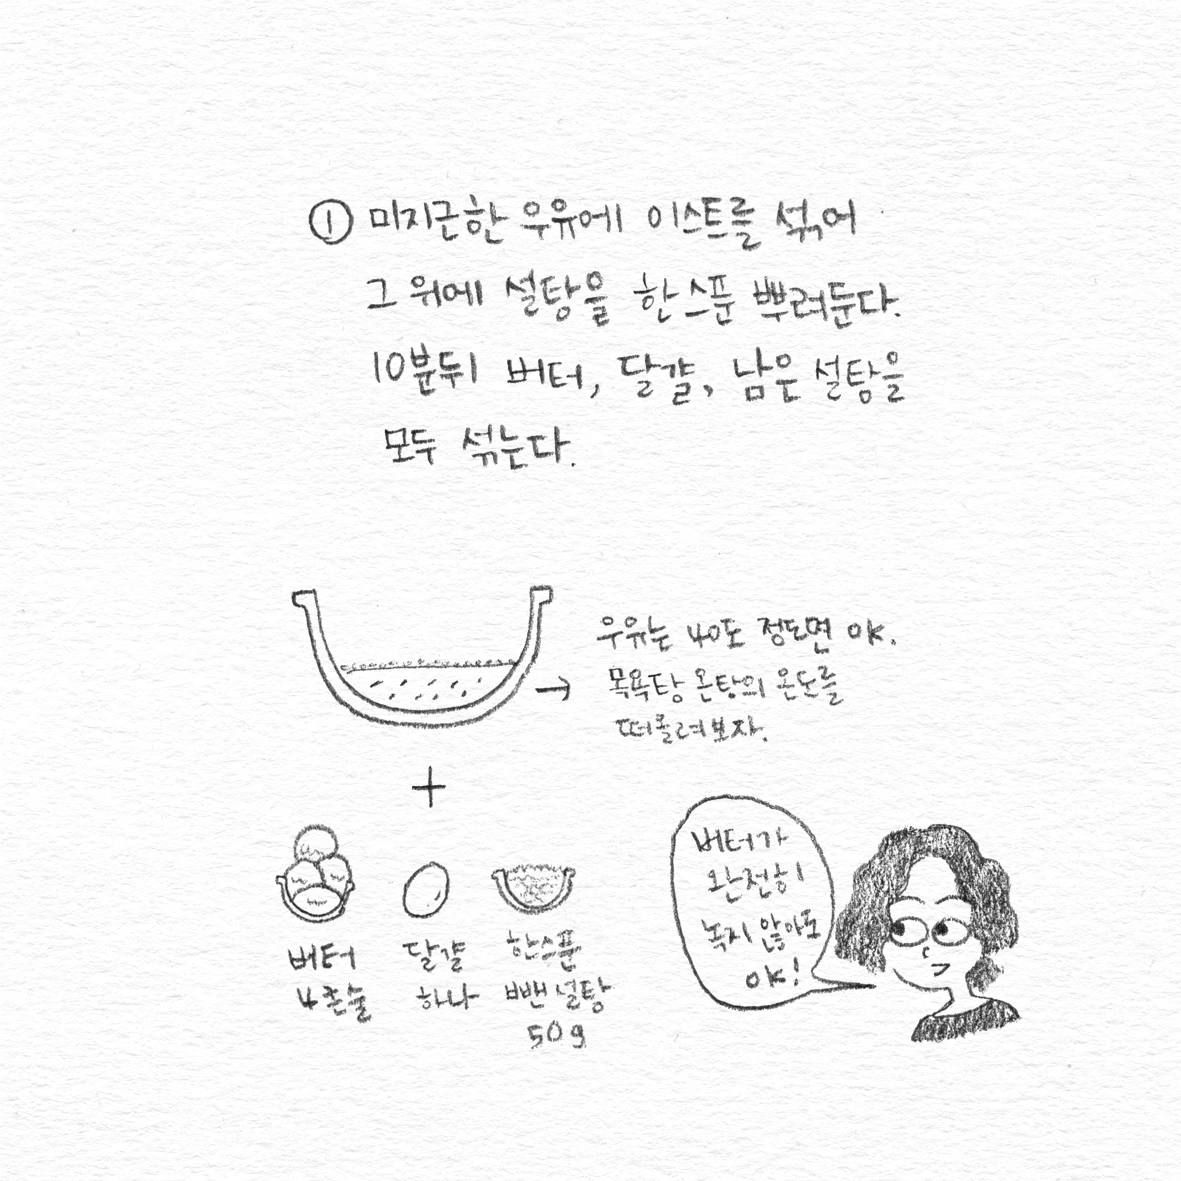 ① 미지근한 우유에 이스트를 섞어
그 위에 설탕을 한스푼 뿌려둔다.
10분뒤 버터, 달걀, 남은 설탕을
모두 섞는다.
우유는 40도 정도면 OK.
목욕탕 온탕의 온도를
떠올려보자.
+
버터
4큰술
달걀
하나
한스푼
뺀 설탕
50g
버터가
완전히
녹지 않아도
OK!